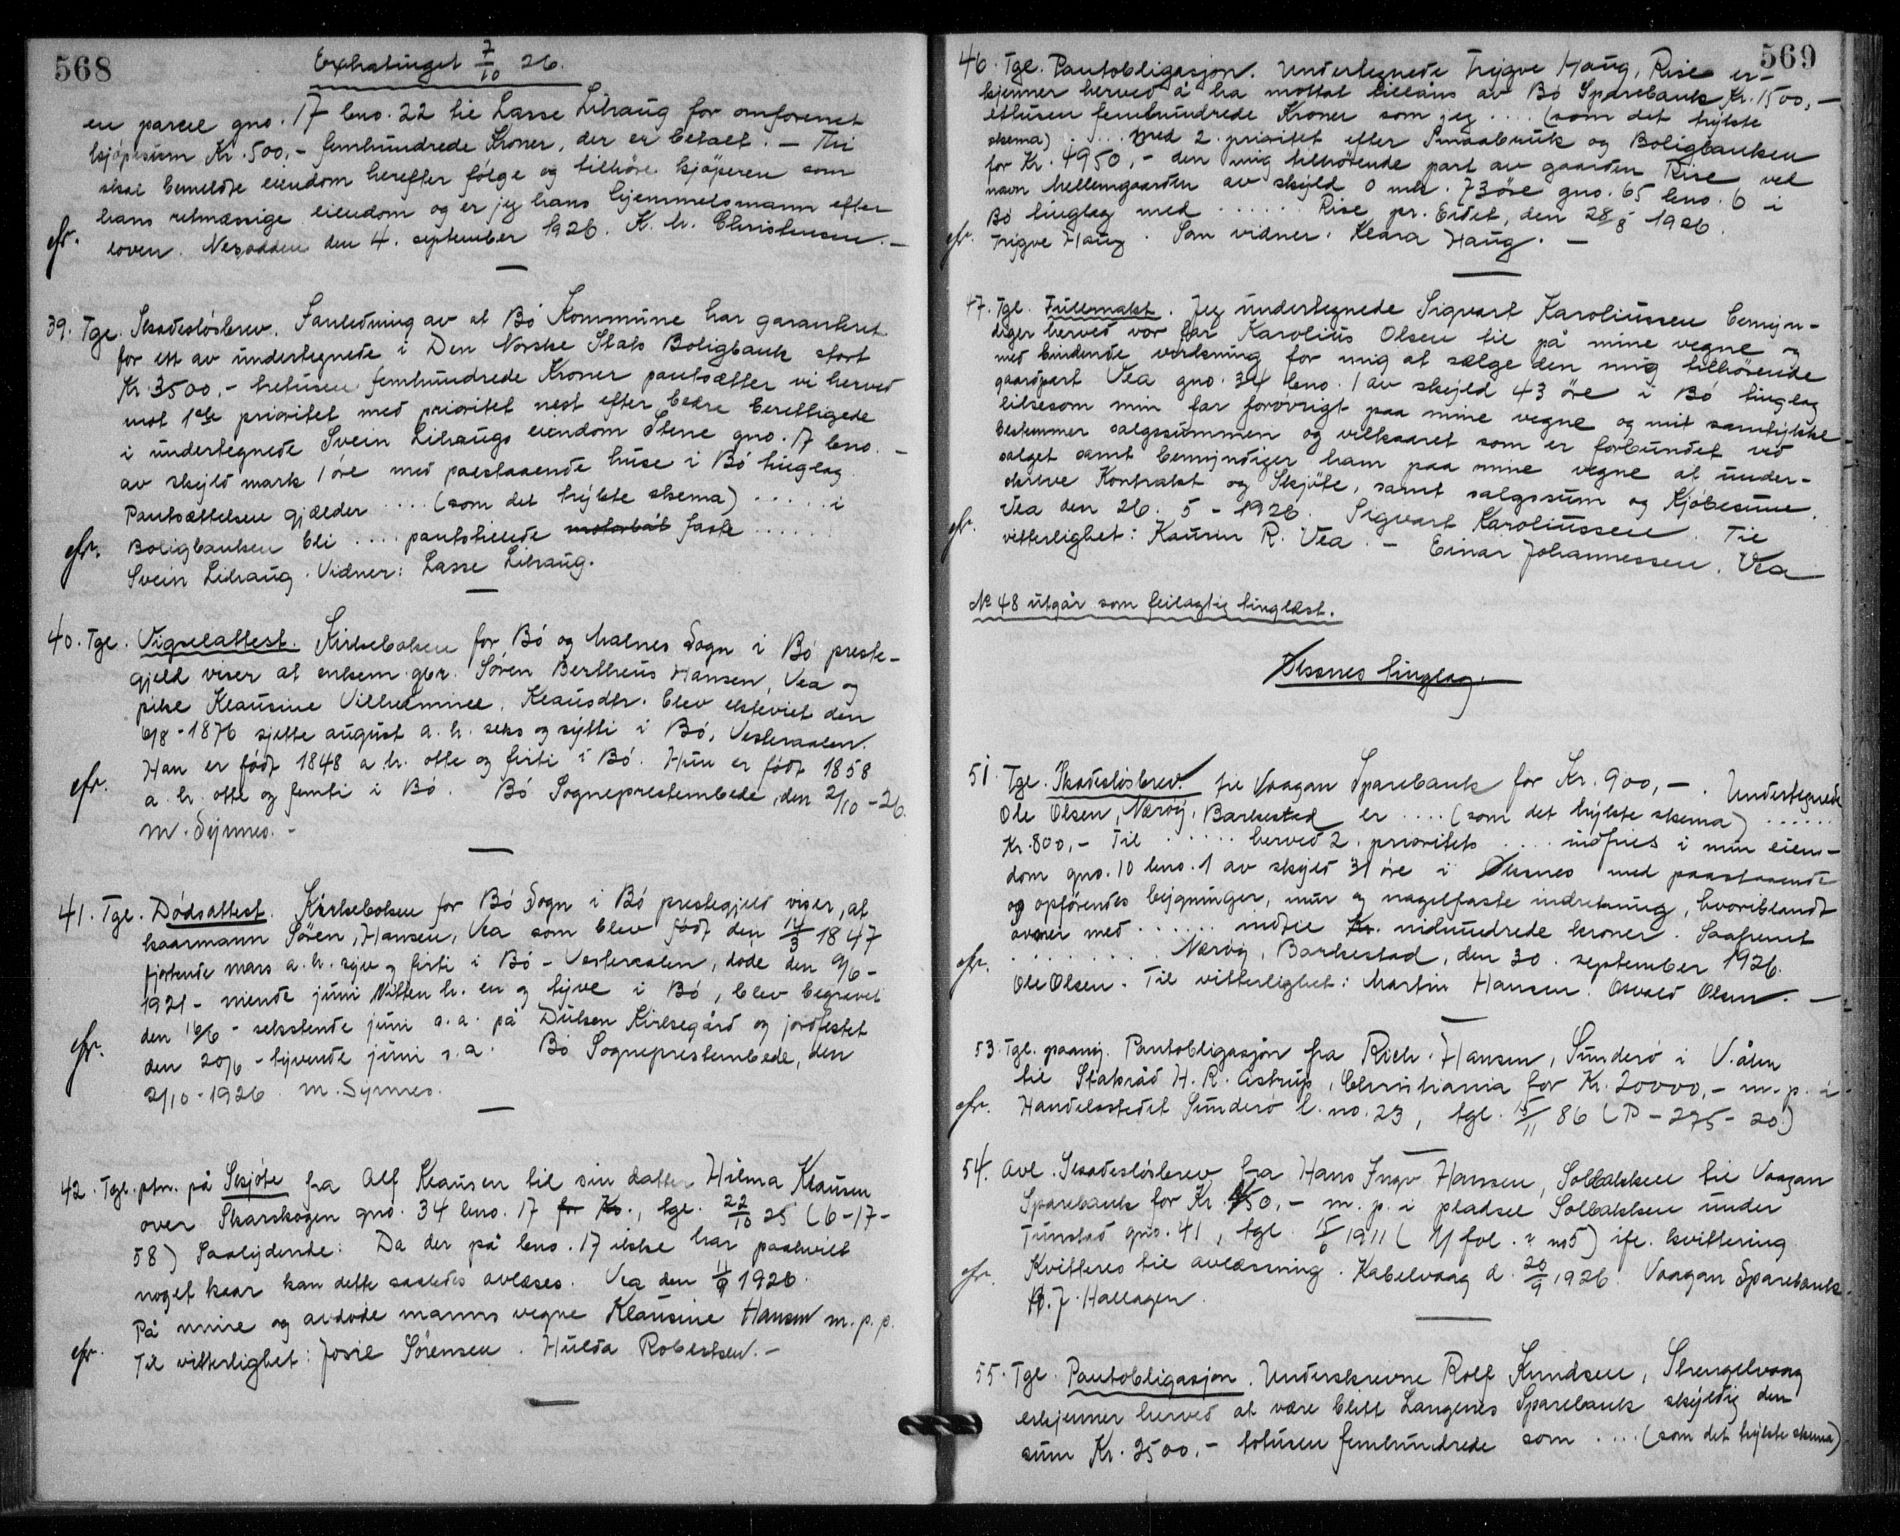 568
Extratinget 7/10 26.
en parcel gno. 17 bno. 22 til Lasse Lihaug for omforenet
kjøpesum Kr. 500,- femhundrede Kroner, der er betalt. - Thi
skal bemeldte eiendom herefter følge og tilhöre kjöperen som
hans retmæssige eiendom og er jeg hans hjemmelsmann efter
cfr. loven. Nesodden den 4. september 1926. K. M. Christensen. -
39. Tgl. Skadeslösbrev. I anledning av at Bö Kommune har garantert
for ett av undertegnede i Den Norske Stats Boligbank stort
Kr. 3500,- tretusen femhundrede Kroner pantsætter vi herved
mot 1ste prioritet med prioritet nest efter bedre berettigede
i undertegnede Svein Lihaugs eiendom Stene gno. 17 bno. -
av skyld mark 1 öre med paastaaende huse i Bö tinglag
Pantsættelsen gjælder .... (som det trykte skema) ..... i
cfr. Boligbanken bli .... pantstiende motorbåt faste ......
Svein Lihaug. Vidner: Lasse Lihaug.
40. Tgl. Vigselattest. Kirkeboken for Bö og Malnes Sogn i Bö preste-
gjeld viser at enkem. gbr. Sören Bertheus Hansen, Vea og
pike Klausine Vilhelmine Klausdtr. blev ekteviet den
6/8 - 1876 sjette august a. h. seks og sytti i Bö, Vesteraalen.
Han er født 1848 a. h. otte og firti i Bö. Hun er födt 1858
cfr. a. h. otte og femti i Bö. Bö Sogneprestembede, den 2/10 - 26.
M. Synnes. -
41. Tgl. Dödsattest. Kirkeboken for Bö Sogn i Bö prestegjeld viser, at
kaarmann Sören Hansen, Vea som blev födt den 14/3 1847
fjortende mars a. h. syv og firti i Bö - Vesteraalen, døde den 9/6 -
1921 - niende juni Nitten h. en og tyve i Bö, blev begravet
cfr. den 16/6 - sekstende juni s. a. på Dulsen Kirkegård og jordfestet
den 20/6 - tyvende juni s. a. Bö Sogneprestembede, den
2/10 - 1926 M. Synnes.
42. Tgl. ptn. på Skjöte fra Alf Klausen til sin datter Hilma Klausen
over Skarskogen gno. 34 bno. 17 for Kr., tgl. 22/10 25 (6-17-
58) Saalydende: Da der på bno. 17 ikke har paahvilt
noget kaar kan dette saaledes avlæses. Vea den 11/9 1926.
På mine og avdøde manns vegne Klausine Hansen m. p. p.
cfr. Til vitterlighet: Josie Sörensen. Hulda Robertsen. -
569
46. Tgl. Pantobligasjon. Undertegnede Trygve Haug, Rise er-
kjenner herved å ha mottat tillåns av Bö Sparebank Kr. 1500,-
ettusen femhundrede Kroner som jeg .... (som det trykte
skema) ..... med 2. prioritet efter Smaabruk og Boligbanken
for Kr. 4950,- den mig tilhørende part av gaarden Rise ved
navn Mellemgaarden av skyld 0 mk. 73 öre gno. 65 bno. 6 i
Bö tinglag med ...... Rise pr. Eidet, den 28/8 1926.
cfr. Trygve Haug. Som vidner: Klara Haug. -
47. Tgl. Fullmakt. Jeg undertegnede Sigvart Karoliussen bemyn-
diger herved vor far Karolius Olsen til på mine vegne og
med bindende virkning for mig at sælge den mig tilhørende
gaardpart Vea gno. 34 bno. 1 av skyld 43 öre i Bö tinglag
likesom min far forövrigt paa mine vegne og mit samtykke
bestemmer salgssummen og vilkaaret som er forbundet ved
salget samt bemyndiger ham paa mine vegne at under-
skrive Kontrakt og Skjöte, samt salgssum og Kjöbesum.
cfr. Vea den 26. 5 - 1926. Sigvart Karoliussen. Til
vitterlighet: Kaurin R. Vea. - Einar Johannessen, Vea
No 48 utgår som feilagtig tinglæst.
Øksnes tinglag.
51. Tgl. Skadeslösbrev til Vaagan Sparebank for Kr. 900,-. Undertegnede
Ole Olsen, Næröy, Barkestad er .... (som det trykte skema) ......
Kr. 800,- Til ...... herved 2. prioritets .... indfries i min eien-
dom gno. 10 bno. 1 av skyld 31 öre i Öksnes med paastaaende
og opförendes bygninger, mur og nagelfaste indretning, hvoriblandt
ovner med ...... indtil Kr. nihundrede kroner. Saafremt
cfr. ......... Næröy, Barkestad, den 30. september 1926.
Ole Olsen. Til vitterlighet: Martin Hansen. Osvald Olsen. -
53. Tgl. paanj. Pantobligasjon fra Rich. Hansen, Sunderö i V.ålen
til Statsråd H. R. Astrup, Christiania for Kr. 20000,- m. p. i
cfr. Handelsstedet Sunderö l. no. 23, tgl. 15/11 86 (P - 275 - 20)
54. Avl. Skadeslösbrev fra Hans Ingv. Hansen, Solbakken til Vaagan
Sparebank for Kr. 450,- m. p. i pladsel Solbakken under
Tunstad gno. 41, tgl. 15/6 1911 ( ny fol. 2 no 5) ifl. kvittering
cfr. Kvitteres til avlæsning. Kabelvaag d. 20/9 1926. Vaagan Sparebank.
H. J. Hallagen.
55. Tgl. Pantobligasjon. Underskrevne Rolf Knudsen, Strengelvaag
erkjenner herved at være blitt Langenes Sparebank skyldig den
sum Kr. 2500,- totusen femhundrede som .... (som det trykte skema)